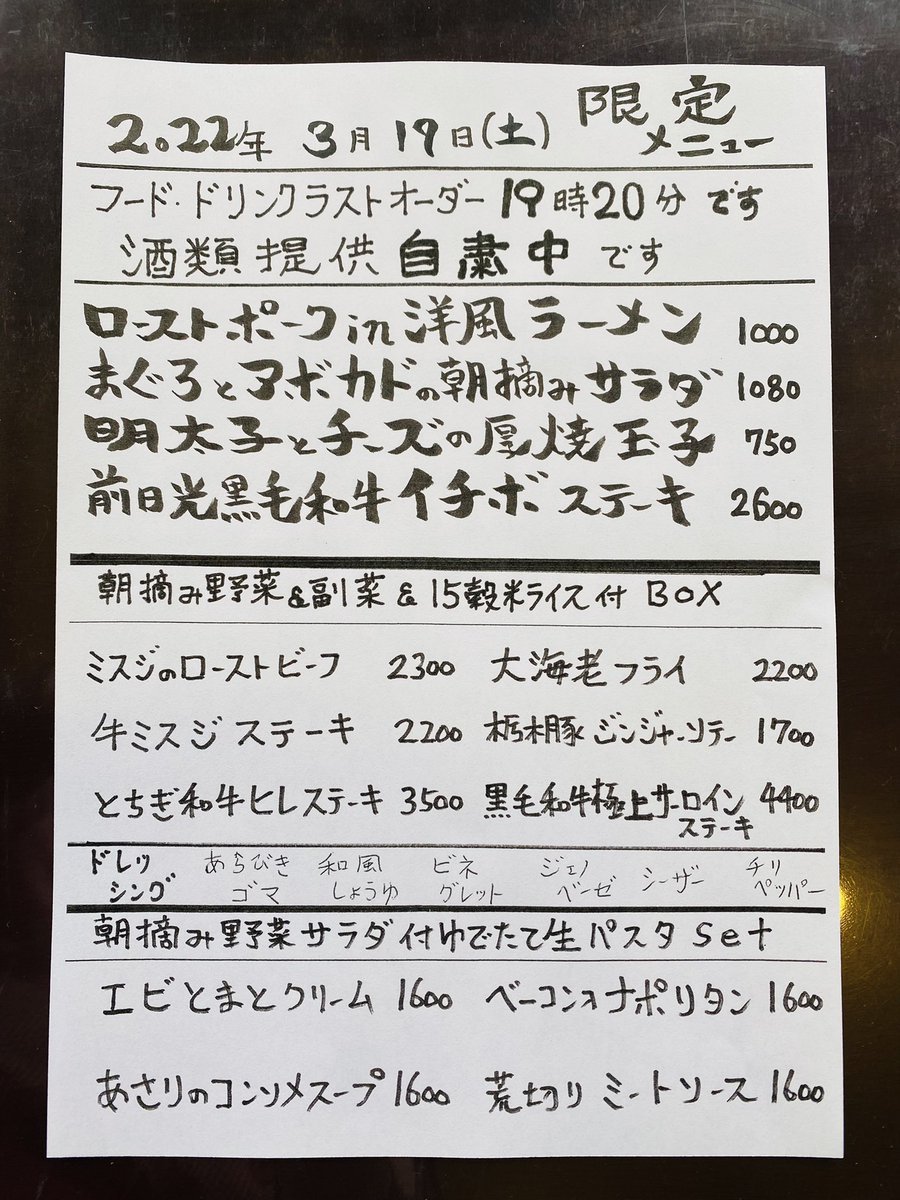 2022年 3月19日(土) 限定メニュー
フード・ドリンクラストオーダー 19時20分です
酒類提供自粛中です
ローストポークin洋風ラーメン 1000
まぐろとアボカドの朝摘みサラダ 1080
明太子とチーズの厚焼玉子 750
前日光黒毛和牛イチボステーキ 2600
朝摘み野菜&副菜&15穀米ライス付 BOX
ミスジのローストビーフ 2300 大海老フライ 2200
牛ミスジステーキ 2200 栃木豚ジンジャーソテー 1700
とちぎ和牛ヒレステーキ 3500 黒毛和牛極上サーロインステーキ 4400
ドレッシング あらびきゴマ 和風しょうゆ ビネグレット ジェノベーゼ シーザー チリペッパー
朝摘み野菜サラダ付ゆでたて生パスタ Set
エビとまとクリーム 1600 ベーコンonナポリタン 1600
あさりのコンソメスープ 1600 荒切りミートソース 1600